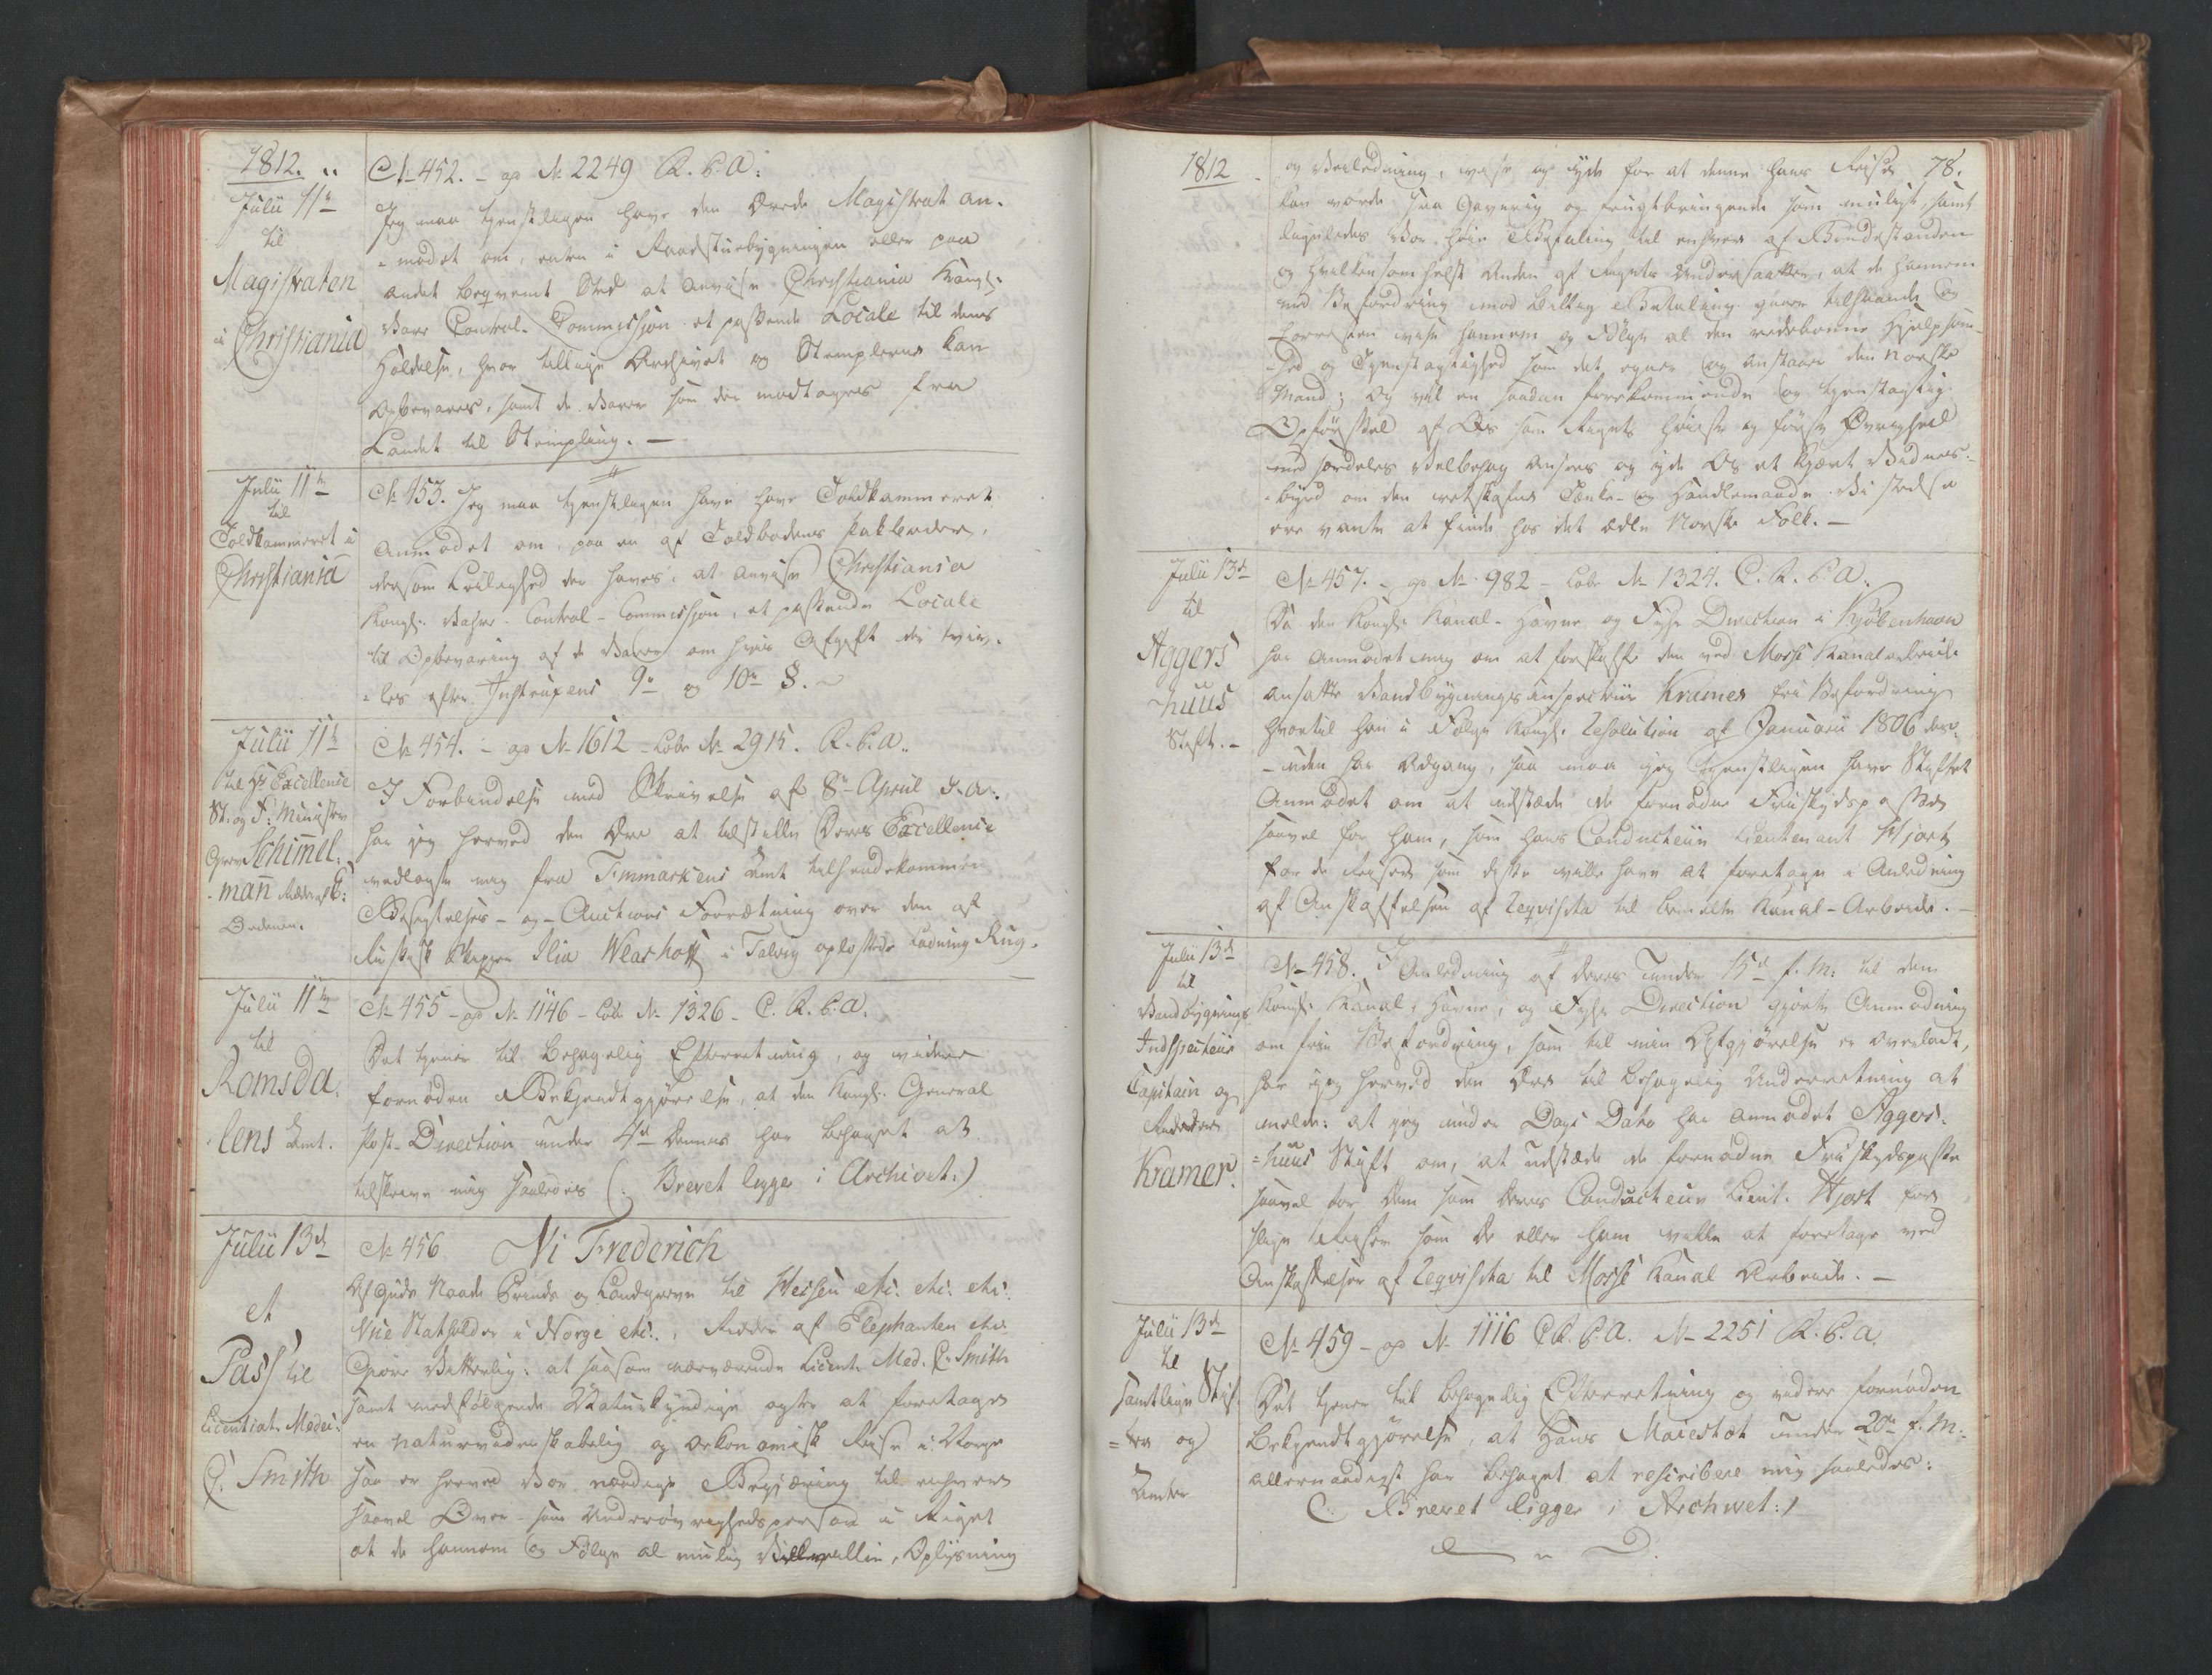 1812.
Julii 11te
til
Magistraten
i Christiania
No 452. - ao No 2249 R. C. A:
Jeg maa tjenstligen have den Ærede Magistrat an-
- modet om, enten i Raadstuebygningen eller paa
andet beqvemt Sted at anvise Christiania Kongl:
Vare Control-Commission et passende Locale til dens
Holdelse, hvor tillige Archivet og Stemplerne kan
opbevares, samt de Varer som der modtages fra
Landet til Stempling. -
Julii 11te
til
Toldkammeret i
Christiania
No 453. Jeg maa tjenstligen have have Toldkammeret
anmodet om, paa en af Toldbodens Pakboder,
dersom Leilighed der haves, at anvise Christiania
Kongl: Vahre-Control-Commission, et passende Locale
til Opbevaring af de Varer om hvis Afgift der tviv-
- les efter Instruxens 9de og 10de §. -
Julii 11te
til Hs Excellence
St. og F: Minister
Grev Schimmel-
- mann Ridder af E:
Ordenen.
No 454. - ao No 1612 - Lobe No 2915. R. C. A.
I Forbindelse med Skrivelse af 8de April d. A:
har jeg herved den Ære at tilstille Deres Excellence
vedlagte mig fra Finmarkens Amt tilhændekommen
Besigtelses- og -Auctions Forretning over den af
Russisk Skipper Ilia Wearhoff i Talvig oplossede Ladning Rug.
Julii 11te
til
Romsda-
lens Amt.
No 455 - ao No 1146 - Lobe No 1326 - C. R. C. A.
Det tjener til behagelig Efterretning, og videre
fornøden Bekjendtgjørelse, at den Kongl: General
Post-Direction under 4de dennes har behaget at
tilskrive mig saaledes (: Brevet ligger i Archivet:)
Julii 13de
et
Pass til
Licentiat. Medci:
C. Smith
No 456 Vi Frederich
Af Guds Naade Prinds og Landgreve til Hessen etc: etc: etc:
Vice Statholder i Norge etc:, Ridder af Elephanten etc:
Gjøre Vitterlig: at saasom nærværende Licent. Med. C. Smith
samt medfølgende Naturkyndige agter at foretage
en naturvidenskabelig og oekonomisk Reise i Norge
saa er herved Vor naadige Begjæring til enhver
saavel Over- som Underøvrighedsperson i Riget
at de hannem og Følge al mulig Velvillie, Oplysning
1812
78.
og Veiledning, vise og yde for at denne hans Reise
kan vorde saa gavnrig og frugtbringende som muligt, samt
ligeledes Vor høie Befaling til enhver af Bondestanden
og hvilkensomhelst Anden af Rigets Undersaatter, at de hannem
med Befordring imod billig Betaling gaaer tilhaande og
forresten vise hannem og Følge al den redebonne Hjelpsom-
- hed og Tjenstagtighed som det egner og anstaaer den norske
Mand; og vil en saadan forekommende og tjenstagtig
Opførsel af Os som Rigets høieste og første Øvrighed
med særdeles Velbehag ansees og yde Os et kjært Vidnes-
- byrd om den retskafne Tænke- og Handlemaade Vi stedse
ere vante at finde hos det ædle Norske Folk. -
Julii 13de
til
Aggers
huus
Stift. -
No 457. - ao No 982 - Lobe No 1324. C. R. C. A.
Da den Kongl: Kanal- Havne og Fyhr Direction i Kjøbenhavn
har anmodet mig om at forskaffe den ved Mosse Kanalarbeide
ansatte Vandbygningsinspecteur Kramer fri Befordring
hvortil han i Følge Kongl: Resolution af Januarii 1806 der-
- uden har Adgang, saa maa jeg tjenstligen have Stiftet
Anmodet om at udstæde de fornødne Friskydspasse
saavel for ham, som hans Conducteur Lieutenant Hjort
for de Reiser som disse ville have at foretage i Anledning
af Anskaffelsen af Reqvisita til bemelte Kanal-Arbeide. -
Julii 13de
til
Vandbygnings
Indspecteur
Capitain og
Ridder
Kramer.
No 458. I Anledning af Deres under 15de f. M: til den
Kongl: Kanal, Havne, og Fyhr Direction gjorte Anmodning
om frie Befordring, som til min Afgjørelse er overladt,
har jeg herved den Ære til behagelig Underretning at
melde: at jeg under Dags Dato har anmodet Aggers-
= huus Stift om, at udstæde de fornødne Friskydspasse
saavel for Dem som Deres Conducteur Lieut. Hjort for
slige Reiser som De eller ham ville at foretage ved
Anskaffelser af Reqvisita til Mosse Kanal Arbeide. -
Julii 13de
til
samtlige Stif-
= ter og
Amter
No 459 - ao No 1116 C. R. C. A. No 2251 R. C. A.
Det tjener til behagelig Efterretning og videre fornøden
Bekjendtgjørelse, at Hans Maiestæt under 20de f. M:
allernaadigst har behaget at rescribere mig saaledes:
(: Brevet ligger i Archivet:)